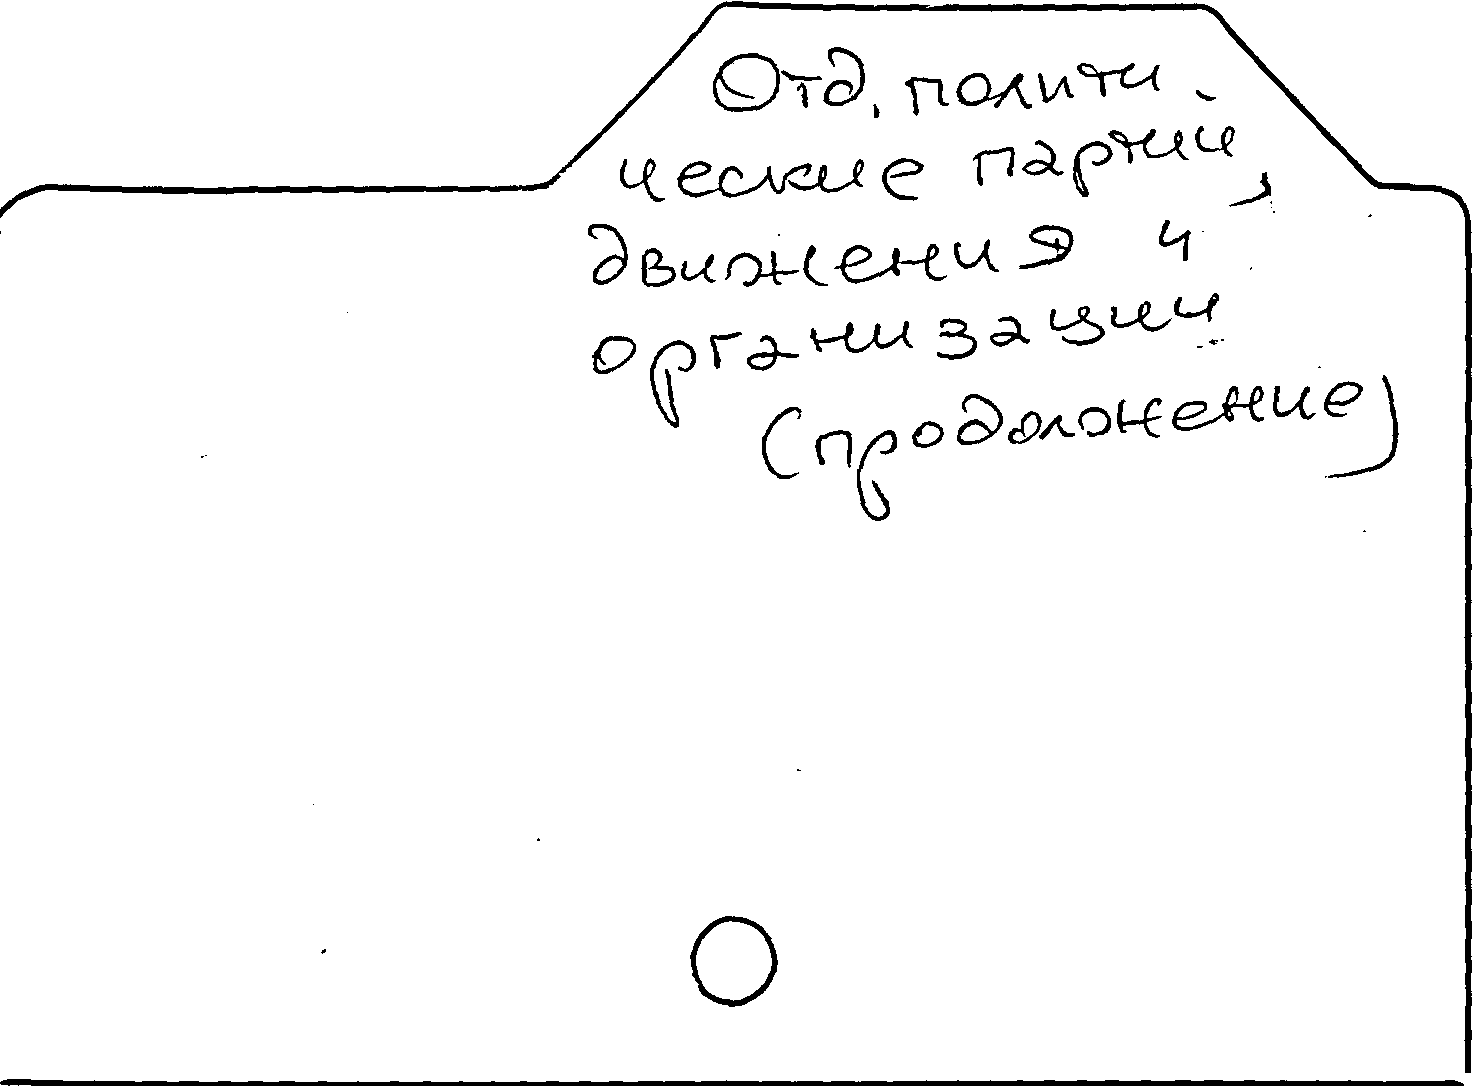 Отд. полити-
ческие партии,
движения и
организации
(продолжение)